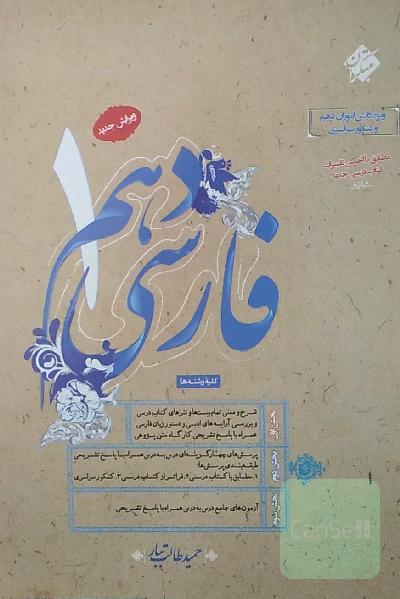 مبتکران
ویژه دانش آموزان دهم
و کنکور سراسری
مطابق با آخرین تغییرات
کتاب درسی جدید
ویرایش جدید
فارسی دهم
۱
کلیه رشته‌ها
بخش اول
شرح و معنی تمام بیت‌ها و نثرهای کتاب درسی
و بررسی آرایه های ادبی و دستور زبان فارسی
همراه با پاسخ تشریحی کارگاه متن پژوهی
بخش دوم
پرسش های چهارگزینه‌ای درس به درس همراه با پاسخ تشریحی
طبقه‌بندی پرسش‌ها:
۱. مطابق با کتاب درسی ۲. فراتر از کتاب درسی ۳. کنکور سراسری
بخش سوم
آزمون‌های جامع درس به درس همراه با پاسخ تشریحی
حمید طالب تبار
CanSell